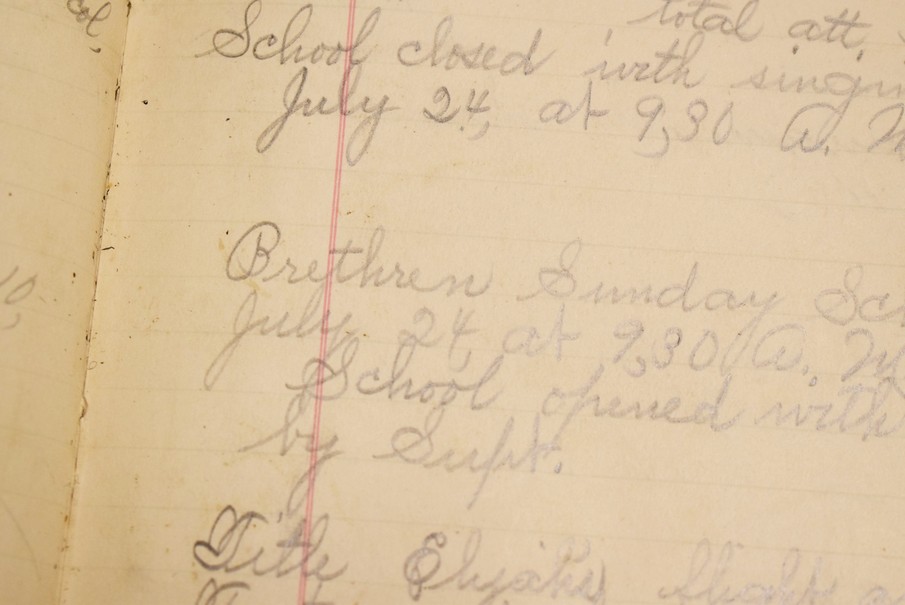 Col,
total att.
School closed with singin
July 24, at 9,30 A. M
Brethren Sunday Sc
July 24, at 9,30 A. M
School opened with
by Supt.
10,
Title Elijahs flight a